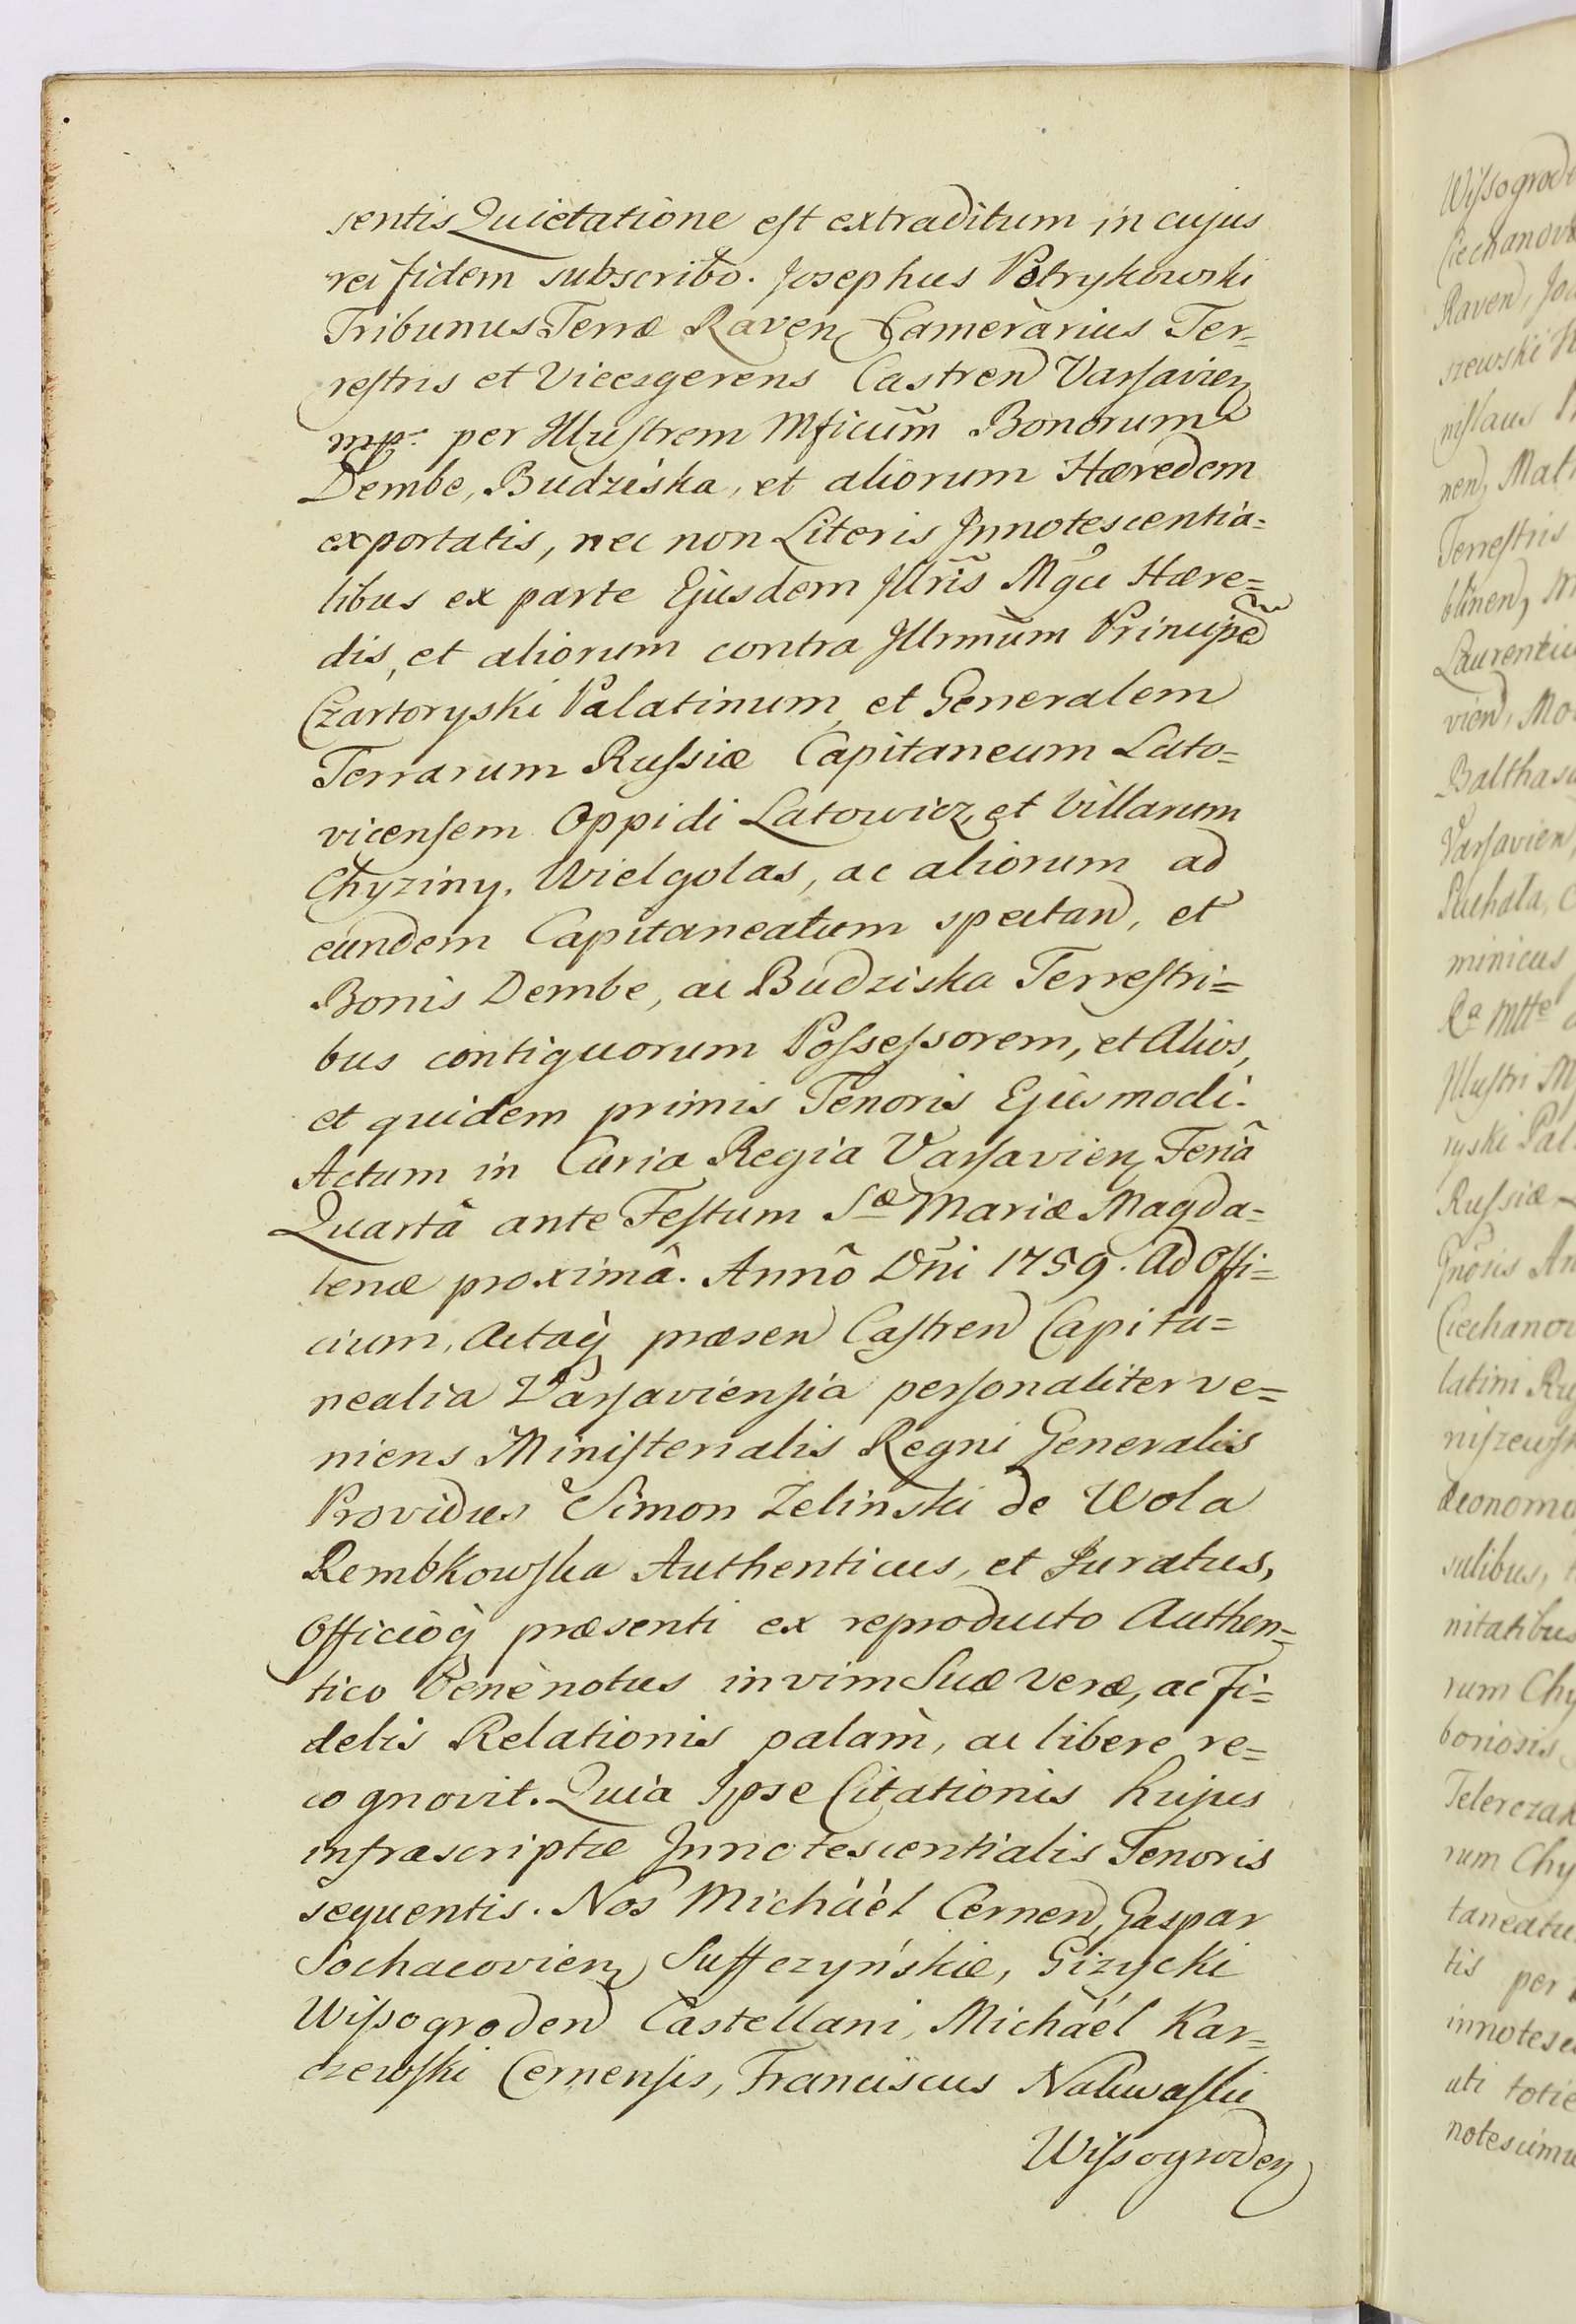 sentis Quietatione est extraditum in cujus
rei fidem subscribo. Josephus Petrykowski
Tribunus Terræ Raven, Camerarius Ter=
restris et Vicesgerens Castren Varsavien
mp. per Illustrem Mficum̃ Bonorum
Dembe, Budziska, et aliorum Hæredem
exportatis, nec non Literis Innotescentia=
libus ex parte Ejusdem Illris̃ Mgci Hære=
dis, et aliorum contra Illrmum̃ Principẽ
Czartoryski Palatinum, et Generalem
Terrarum Russiæ Capitaneum Lato=
vicensem Oppidi Latowicz, et Villarum
Chyziny, Wielgolas, ac aliorum ad
eundem Capitaneatum spectan, et
Bonis Dembe, ac Budziska Terrestri=
bus contiguorum Possessorem, et Alios,
et quidem primis Tenoris Ejusmodi.
Actum in Curia Regia Varsavien, Feriâ
Quartâ ante Festum Sæ Mariæ Magda=
lenæ proximâ. Annô Dñi 1759. Ad Offi=
cium, Actaq̀ præsen Castren Capita=
nealia Varsaviensia personaliter ve=
niens Ministerialis Regni Generalis
Providus Simon Zelinski de Wola
Rembkowska Authenticus, et Juratus,
Officioq̀ præsenti ex reproducto Authen=
tico benè notus in vim Suæ veræ, ac fi=
delis Relationis palam̀, ac libere re=
cognovit. Quia Ipse Citationis hujus
infrascriptæ Innotescentialis Tenoris
sequentis. Nos Michäel Cernen, Gaspar
Sochacovien, Suffczyńskie, Gizycki
Wissogroden Castellani, Michäel Kar=
czewski Cernensis, Franciscus Nakwaski
Wissogroden
Wissogrode
Ciechanov
Raven, Jo
szewski
nislaus
nen, Mat
Terrestris
blinen, M
Laurentiu
vien, Mo
Balthas
Varsavien,
Puchala, C
minicus
Rª Mtte
Illustri M
ryski Pal
Russiæ
Gnosis An
Ciechanov
latini Ru
niszewsk
œconomo
sulibus,
nitatibus
rum Chy
boriosis,
Telerczak
rum Chy
taneatu
tis per
innotesc
uti totie
notescimu